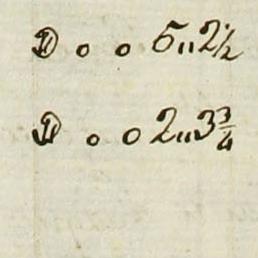 D o o 5"2½
D o o 2"3¾